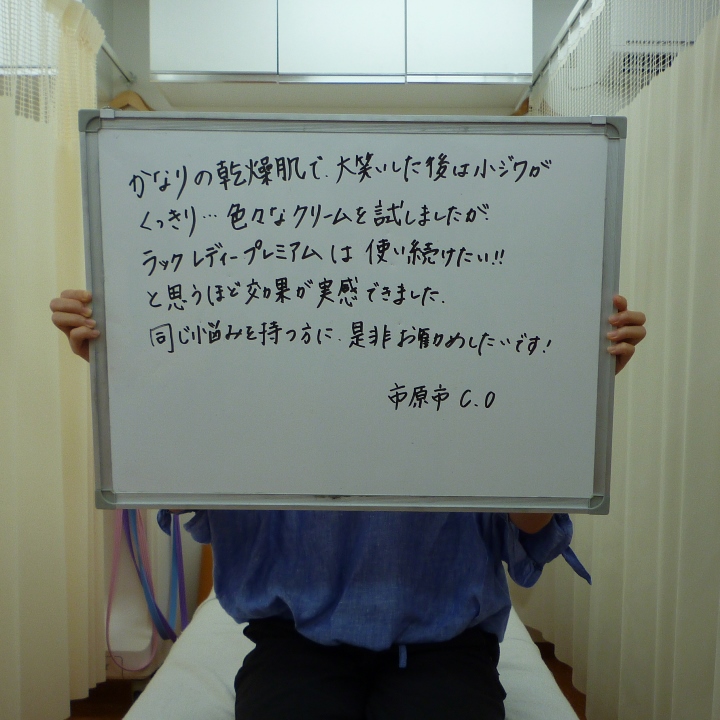 かなりの乾燥肌で、大笑いした後は小ジワが
くっきり…色々なクリームを試しましたが、
ラックレディープレミアムは使い続けたい!!
と思うほど効果が実感できました.
同じ悩みを持つ方に、是非お勧めしたいです!
市原市 C.O